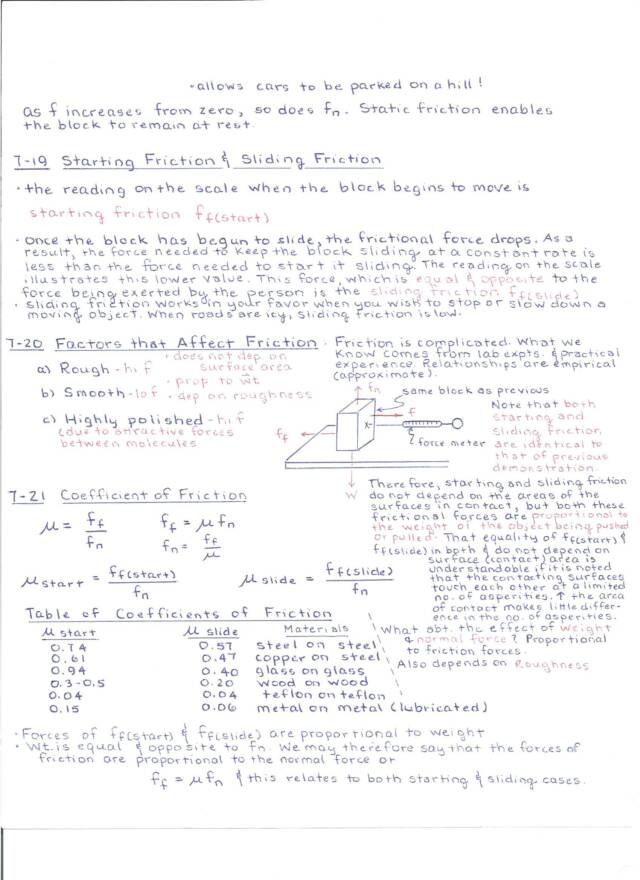 ·allows cars to be parked on a hill!
as f increases from zero, so does fn. Static friction enables
the block to remain at rest.
7-19 Starting Friction & Sliding Friction
· the reading on the scale when the block begins to move is
starting friction ff(start)
· Once the block has begun to slide, the frictional force drops. As a
result, the force needed to keep the block sliding at a constant rate is
less than the force needed to start it sliding. The reading on the scale
illustrates this lower value. This force, which is equal & opposite to the
force being exerted by the person is the sliding friction ff(slide)
· sliding friction works in your favor when you wish to stop or slow down a
moving object. When roads are icy, sliding friction is low.
7-20 Factors that Affect Friction
· does not dep. on
surface area
a) Rough - hi f
· prop to wt
b) Smooth - lo f
· dep on roughness
c) Highly polished - hi f
(due to attractive forces
between molecules
· Friction is complicated. What we
know comes from lab expts. & practical
experience. Relationships are empirical
(approximate).
fn
same block as previous
f
x
ff
force meter
W
Note that both
starting and
sliding friction
are identical to
that of previous
demonstration.
Therefore, starting and sliding friction
do not depend on the areas of the
surfaces in contact, but both these
frictional forces are proportional to
the weight of the object being pushed
or pulled. That equality of ff(start) &
ff(slide) in both & do not depend on
surface (contact) area is
understandable if it is noted
that the contacting surfaces
touch each other at a limited
no. of asperities. ↑ the area
of contact makes little differ-
ence in the no. of asperities.
What abt. the effect of weight
& normal force? Proportional
to friction forces.
Also depends on Roughness
7-21 Coefficient of Friction
μ = ff/fn ff = μfn
fn = ff/μ
μstart = ff(start)/fn μslide = ff(slide)/fn
Table of Coefficients of Friction
μ start μ slide Materials
0.74 0.57 steel on steel
0.61 0.47 copper on steel
0.94 0.40 glass on glass
0.3-0.5 0.20 wood on wood
0.04 0.04 teflon on teflon
0.15 0.06 metal on metal (lubricated)
· Forces of ff(start) & ff(slide) are proportional to weight
· Wt. is equal & opposite to fn. We may therefore say that the forces of
friction are proportional to the normal force or
ff = μfn & this relates to both starting & sliding cases.